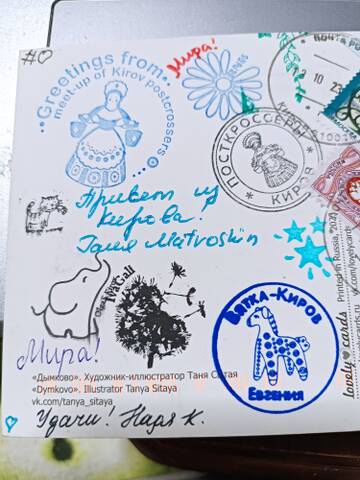 #0
Greetings from
meet-up of Kirov postcrossers
Мира!
10 23
ПОСТКРОССЕРЫ
* КИРОВ *
Привет из
Кирова!
Таня Matroskin
NatGali
Мира!
ВЯТКА-КИРОВ
ЕВГЕНИЯ
«Дымково». Художник-иллюстратор Таня Сытая
«Dymkovo». Illustrator Tanya Sitaya
vk.com/tanya_sitaya
Удачи! Наря К.
lovely cards
Printed in Russia, 202
vk.com/lovelycards